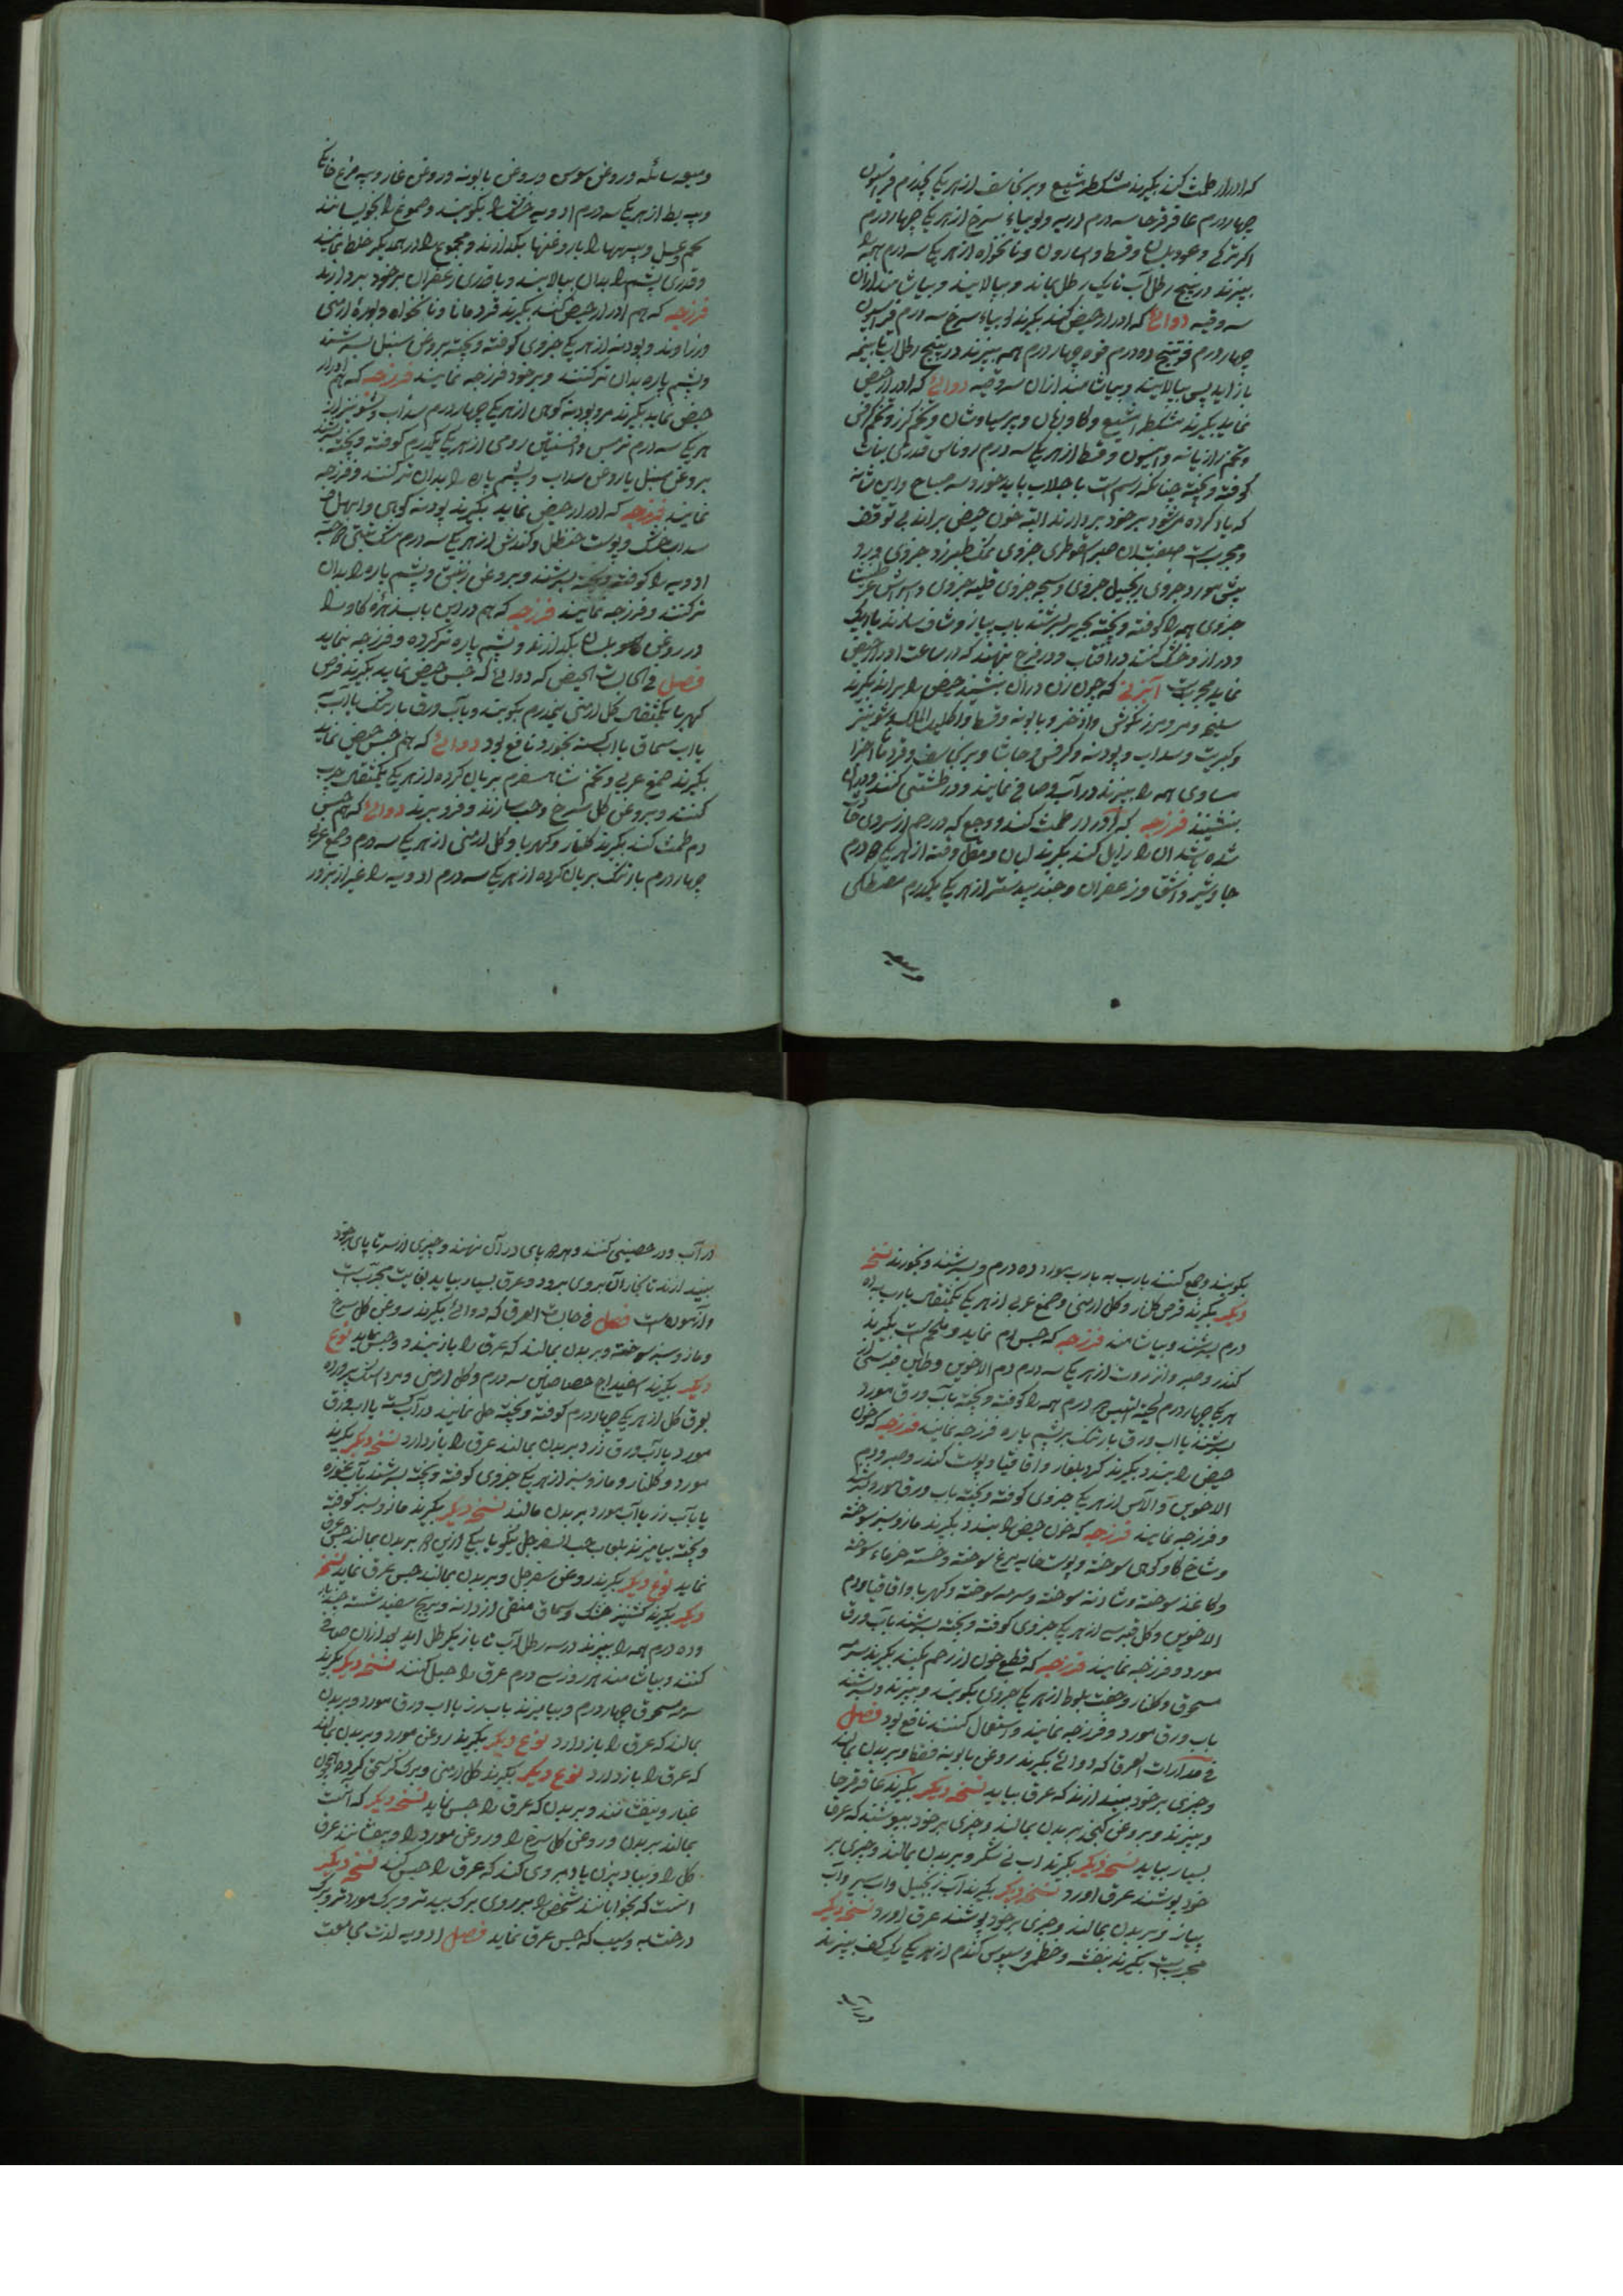 که ادرار طمث کند بگیرند مشکطرامشیع و برنجاسف از هر یکی پنجدرم فراسیون
چهار درم عاقرقرحا سه درم ابریه ولوبیاء سرخ از هر یکی چهار درم
اکر ترکی و عود بلسان و قسط و اسارون و نانخواه از هر یکی سه درم همه را
بپزند در پنج رطل آب تا یک رطل بماند و بپالایند و بیاشامند از آن
سه وقیه دوائی که ادرار حیض کند بگیرند لوبیاء سرخ سه درم فراسیون
چهار درم فوتنج ده درم فوه چهار درم همه بپزند در پنج رطل آب تا بنیمه
باز اید پس بپالایند و بیاشامند از ان سه وقیه دوائی که ادرار حیض
نماید بگیرند مشکطرامشیع و کاوزبان و پرسیاوشان و تخم کزر و تخم کرفس
و تخم رازیانه و انیسون و قسط از هر یکی سه درم روناس قدری نبات
کوفته و بیخته چنانکه رسم است با جلاب باید خورد سه صباح و این شافه
که یاد کرده میشود بر خود بردارند البته خون حیض براند بی توقف
و مجربست صفت ان صبر سقوطری جزوی نمک طبرزد جزوی
جزوی همه را کوفته و بیخته بحریر بسرشند باب پیاز و شاف سازند باریک
و دراز و خشک کنند در افتاب و در فرج نهند که در ساعت ادرار حیض
نماید مجربست آبزنی که چون زن در ان بنشیند حیض را براند بگیرند
سلیخه و مر و مرزنکوش و اذخر و بابونه و قسط و اکلیل الملک و شونیز
و کبریت و سداب و پودنه و کرفس و حاشا و برنجاسف و قردمانا اجزا
مساوی همه را بپزند در آب و صافی نمایند و در طشتی کنند و در ان
بنشینند فرزجه که ادرار طمث کند و وجع که در رحم از سردی حادث
شده باشد ان را زایل کند بگیرند لبان و مقل و قنه از هر یکی ده درم
جاوشیر و اشق و زعفران و جندبیدستر از هر یکی یکدرم مصطکی
و میعه
و میعه سائله و روغن سوسن و روغن بابونه و روغن غار و پیه مرغ خانکی
و پیه بط از هر یکی سه درم ادویه خشک را بکوبند و صموغ را بخویسانند
بخمر و عسل و پیهها را با روغنها بکدازند و مجموع را در همدیکر خلط نمایند
و قدری پشم را بدان بیالایند و با قدری زعفران بر خود بردارند
فرزجه که هم ادرار حیض کند بگیرند قردمانا و نانخواه و بوره ارمنی
و زراوند و پودنه از هر یکی جزوی کوفته و بیخته بروغن سنبل بسرشند
و پشم پاره بدان تر کنند و بر خود فرزجه نمایند فرزجه که هم ادرار
حیض نماید بگیرند مر و پودنه کوهی از هر یکی چهار درم سداب و شونیز از
هر یکی سه درم ترمس و افسنتین رومی از هر یکی یکدرم کوفته و بیخته بسرشند
بروغن سنبل یا روغن سداب و پشم پاره را بدان تر کنند و فرزجه
نمایند فرزجه که ادرار حیض نماید بگیرند پودنه کوهی و ابهل
سداب خشک و پوست حنظل و کندش از هر یکی سه درم مشک تبتی
ادویه را کوفته و بیخته بسرشند و بروغن زنبق و پشم پاره را بدان
تر کنند و فرزجه نمایند فرزجه که هم در این بابست زهره کاو را
در روغن بلسان بکدازند و پشم پاره تر کرده و فرزجه نماید
فصل فی الحابسات الحیض که دوائی که حبس حیض نماید بگیرند قرص
کهربا یکمثقال کل ارمنی نیمدرم بکوبند و باب ورق بارتنک یا آب به
یا اب سماق یا اب کسنه بخورد نافع بود دوائی که هم حبس حیض نماید
بگیرند صمغ عربی و تخم شاهسفرم بریان کرده از هر یکی یکمثقال چرب
کنند و بروغن کل سرخ و حب سازند و فرو برند دوائی که هم حبس
دم طمث کند بگیرند کلنار و کهربا و کل ارمنی از هر یکی سه درم و صمغ عربی
چهار درم بارتنک بریان کرده از هر یکی سه درم ادویه را غیر از بزور
بکوبند و جمع کنند باربه به یا رب مورد ده درم و بسرشند و بخورند نسخه
دیکر بگیرند قرص کلنار و کل ارمنی و صمغ عربی از هر یکی یکمثقال با رب به ده
درم بسرشند و بیاشامند فرزجه که حبس دم نماید و ملحم است بگیرند
کندر و صبر و انزروت از هر یکی سه درم دم الاخوین و طین قبرسی از
هر یکی چهار درم لحیة التیس ده درم همه را کوفته و بیخته بآب ورق مورد
بسرشند یا اب ورق بارتنک بر پشم پاره فرزجه نمایند فرزجه که خون
حیض را ببندد بگیرند و اقاقیا و پوست کندر و صبر و دم
الاخوین و الآس از هر یکی جزوی کوفته و بیخته باب ورق مورد بسرشند
و فرزجه نمایند فرزجه که خون حیض را ببندد بگیرند مازو سبز سوخته
و شاخ کاو کوهی سوخته و پوست خایه مرغ سوخته و خسته خرماء سوخته
و کاغذ سوخته و شادنه سوخته و سرمه سوخته و کهربا و اقاقیا و دم
الاخوین و کل قبرسی از هر یکی جزوی کوفته و بیخته بسرشند بآب ورق
مورد و فرزجه نمایند فرزجه که قطع خون از رحم بکند بگیرند سرمه
مسحوق و کلنار و جفت بلوط از هر یکی جزوی بکوبند و ببیزند و بسرشند
باب ورق مورد و فرزجه نمایند و استعمال کنند نافع بود فصل
فی مدرات العرق که دوائی بگیرند روغن بابونه و بر بدن بمالند
و چیزی بر خود بیندازند که عرق بیاید نسخه دیکر بگیرند عاقرقرحا
و بپزند و بروغن کنجد بر بدن بمالند و چیزی بر خود بپوشند که عرق
بسیار بیاید نسخه دیکر بگیرند اب نی شکر و بر بدن بمالند و چیزی بر
خود بپوشند عرق اورد نسخه دیکر بگیرند آب زنجبیل و اب سیر و اب
پیاز و بر بدن بمالند و چیزی بر خود پوشند عرق اورد نسخه دیکر
مجربست بگیرند بنفشه و خطمی و سبوس کندم از هر یکی یک کف بپزند
در آب
در آب و در حصینی کنند و هر دو پای در آن نهند و چیزی از سر تا پای بر خود
بیندازند تا بخار آن بروی برود و عرق بسیار بیاید بغایت مجربست
و آزموده است فصل فی حابسات العرق که دوائی بگیرند روغن کل سرخ
و مازو سبز سوخته و بر بدن بمالند که عرق را باز بندد و حبس نماید نوع
دیکر بگیرند اسفیداج رصاص سه درم و کل ارمنی و مرداسنک پرورده
بورق کل از هر یکی چهار درم کوفته و بیخته حل نمایند در آب کسنه یا اب ورق
مورد یا آب ورق زرد بر بدن بمالند عرق را باز دارد نسخه دیکر بگیرند
مورد و کلنار و مازو سبز از هر یکی جزوی کوفته و بیخته بسرشند بآب غوره
یا بآب رز یا آب مورد بر بدن مالند نسخه دیکر بگیرند مازو سبز کوفته
و بیخته بیامیزند بلعاب حب السفرجل نیکو یا بیکی ازین ها بر بدن بمالند حبس عرق
نماید نوع دیکر بگیرند روغن سفرجل و بر بدن بمالند حبس عرق نماید نسخه
دیکر بگیرند کشنیز خشک و سماق منقی از دانه و برنج سفید شسته چند بار
و ده درم همه را بپزند در سه رطل آب تا باز یکرطل اید بعد از ان صافی
کنند و بیاشامند هر روز سی درم عرق را حبس کنند نسخه دیکر بگیرند
سرمه مسحوق چهار درم و بیامیزند باب رز یا اب ورق مورد و بر بدن
بمالند که عرق را باز دارد نوع دیکر بگیرند روغن مورد و بر بدن بمالند
که عرق را باز دارد نوع دیکر بگیرند کل ارمنی و همچون
غبار و بیفشانند و بر بدن که عرق را حبس نماید نسخه دیکر که آنست
بمالند بر بدن و روغن کل سرخ را و روغن مورد را و بیفشانند عرق
کل را و بباد بزن باد بر وی کنند که عرق را حبس کند نسخه دیکر
انست که بخوابانند شخص را بر روی برک بید تر و برک مورد تر و برک
درخت به و سیب که حبس عرق نماید فصل ادویه لذت مجامعت